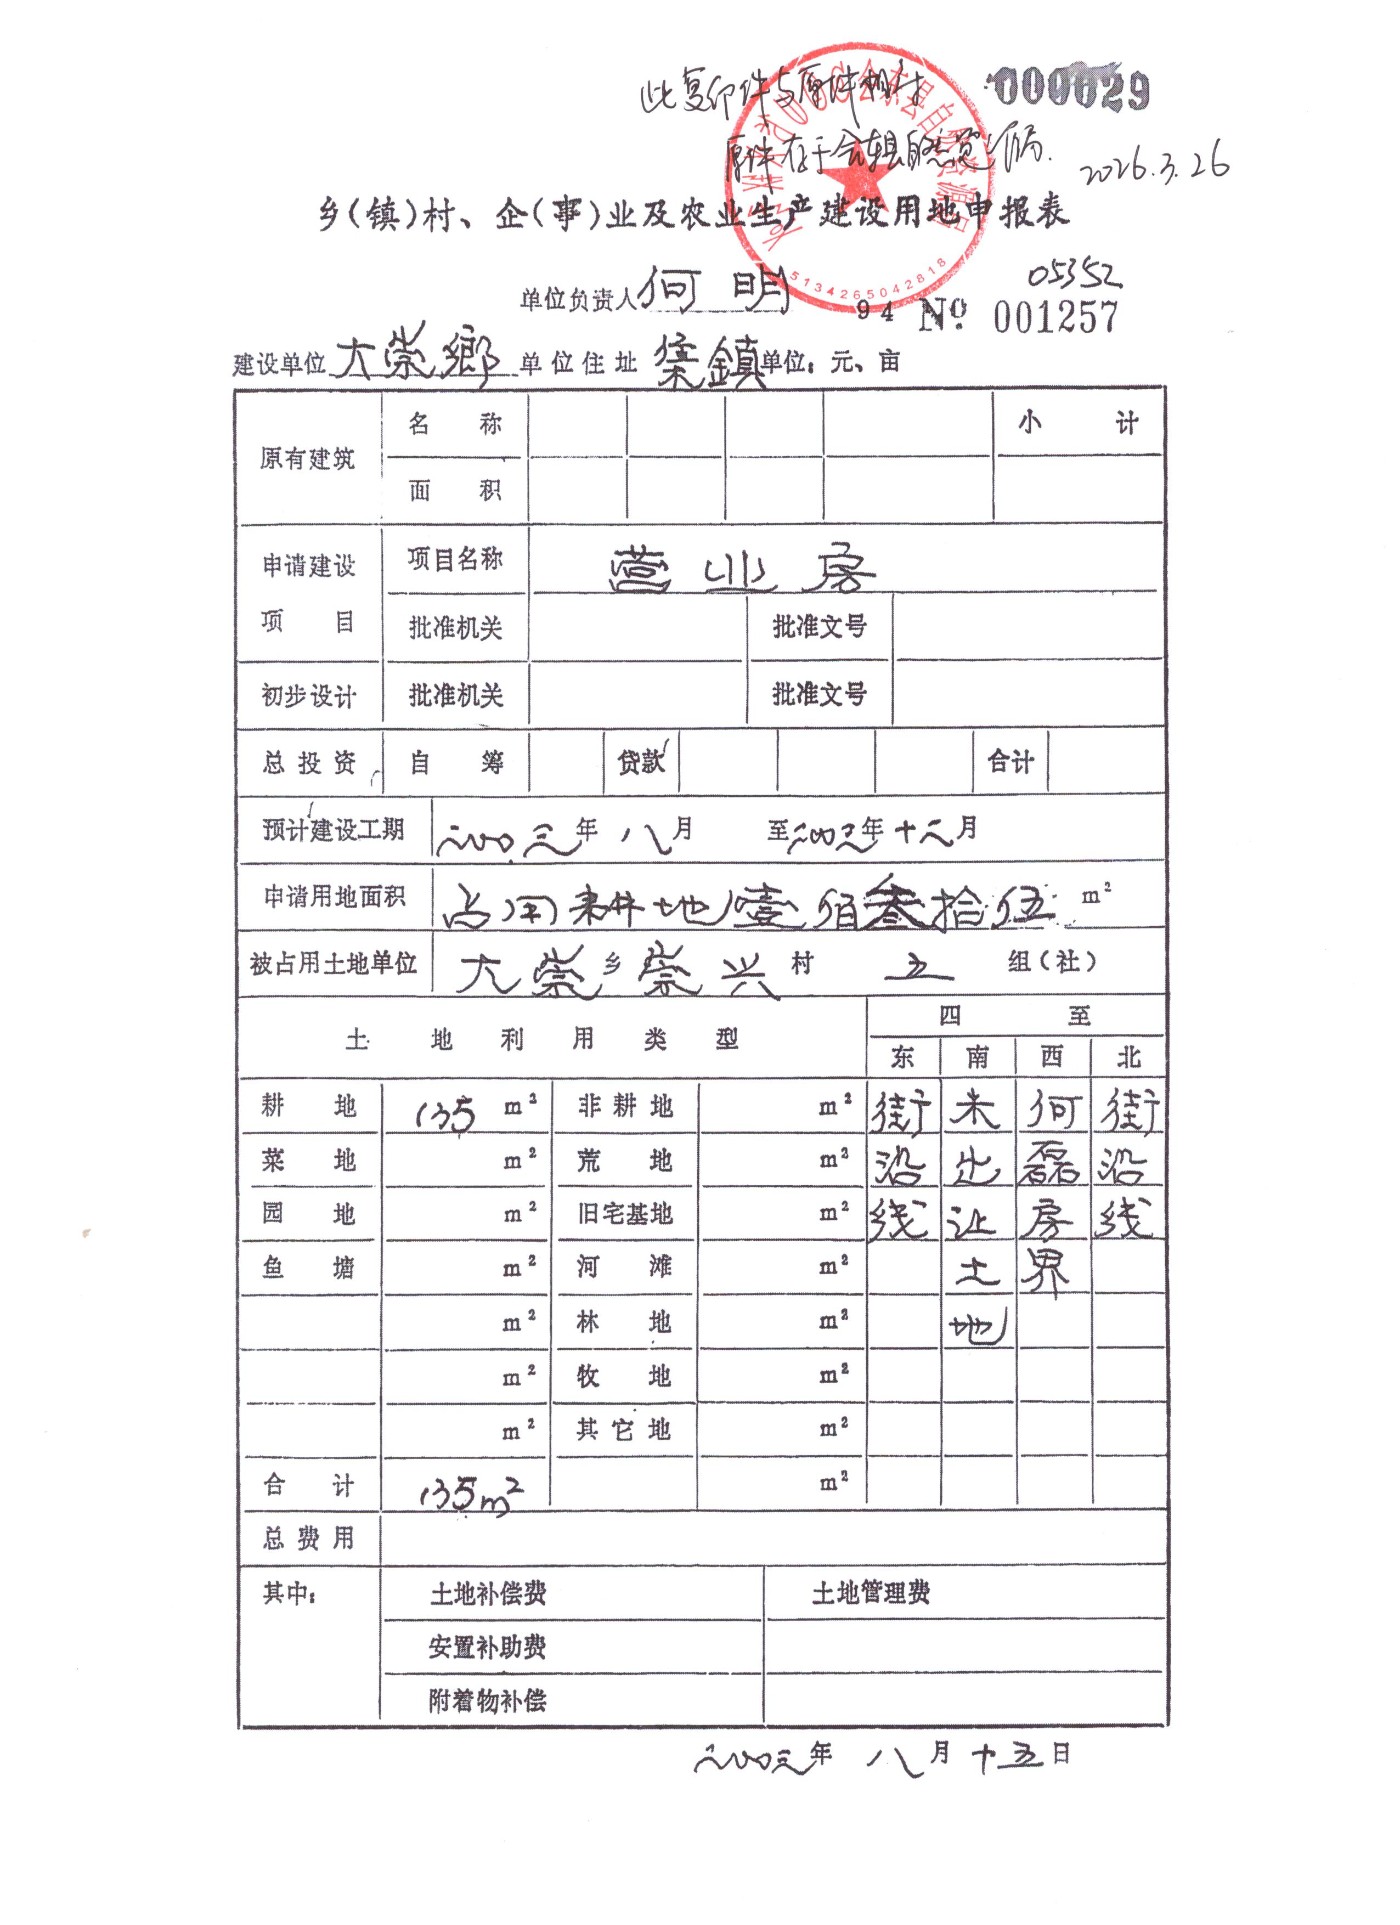 000029
此复印件与原件相符
原件存于会东县自然资源局.
2026.3.26
5134265042818
乡(镇)村、企(事)业及农业生产建设用地申报表
单位负责人 何明
05352
94 № 001257
建设单位 大崇鄉 单位住址 集鎮 单位：元、亩
原有建筑 名称 小计
面积
申请建设项目 项目名称 营业房
批准机关 批准文号
初步设计 批准机关 批准文号
总投资 自筹 贷款 合计
预计建设工期 二00三年八月 至二00三年十二月
申请用地面积 占用耕地壹佰叁拾伍 m²
被占用土地单位 大崇乡崇兴村 五 组(社)
土地利用类型 四至
东 南 西 北
耕地 135 m² 非耕地 m² 街 未 何 街
菜地 m² 荒地 m² 沿 出 磊 沿
园地 m² 旧宅基地 m² 线 让 房 线
鱼塘 m² 河滩 m² 土 界
m² 林地 m² 地
m² 牧地 m²
m² 其它地 m²
合计 135m² m²
总费用
其中： 土地补偿费 土地管理费
安置补助费
附着物补偿
二00三年八月十五日